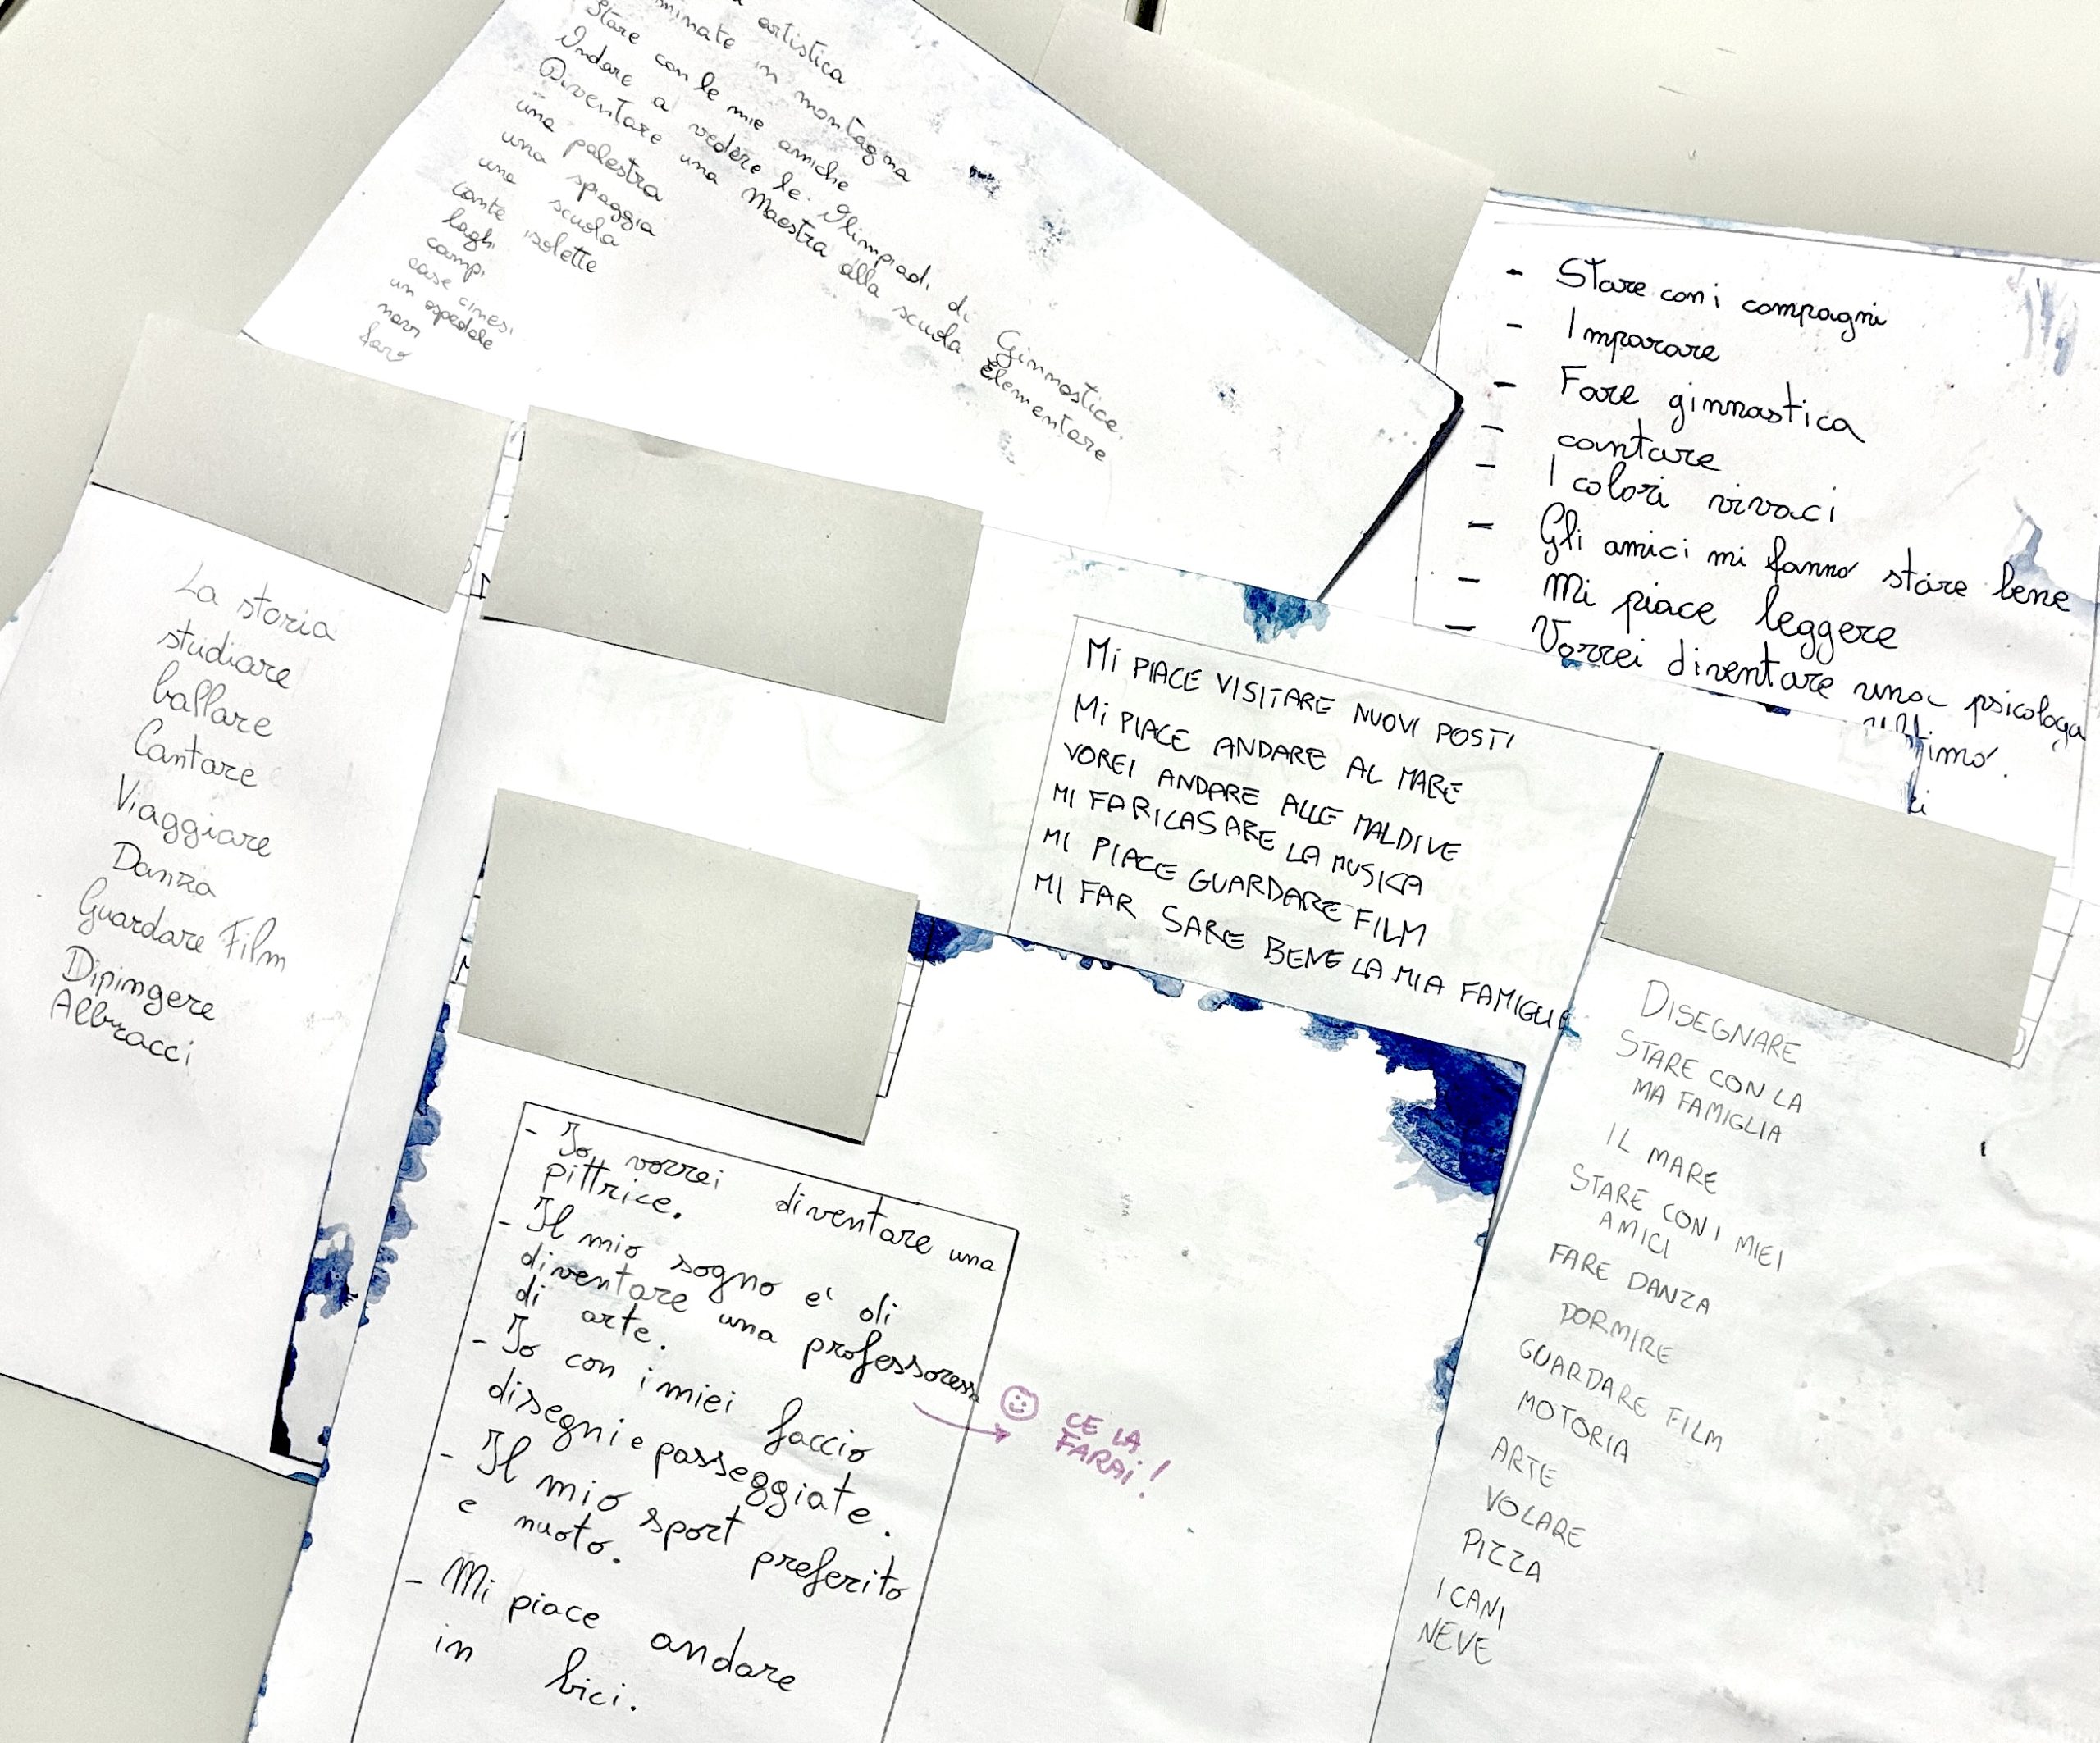 artistica
in montagna
Stare con le mie amiche
Andare a vedere le Olimpiadi di Ginnastica.
Diventare una Maestra alla scuola Elementare
una palestra
una spiaggia
una scuola
isolette
laghi
campi
case cinesi
un ospedale
navi
faro
- Stare con i compagni
- Imparare
- Fare ginnastica
- cantare
- I colori vivaci
- Gli amici mi fanno stare bene
- Mi piace leggere
- Vorrei diventare una psicologa
La storia
studiare
ballare
Cantare
Viaggiare
Danza
Guardare Film
Dipingere
Albracci
Mi PIACE VISITARE NUOVI POSTI
Mi PIACE ANDARE AL MARE
VOREI ANDARE ALLE MALDIVE
MI FA RILASARE LA MUSICA
MI PIACE GUARDARE FILM
MI FAR SARE BENE LA MIA FAMIGLIE
- Io vorrei diventare una
pittrice.
- Il mio sogno e' di
diventare una professoressa
di arte.
- Io con i miei faccio
disegni e passeggiate.
- Il mio sport preferito
e nuoto.
- Mi piace andare
in bici.
CE LA
FARAi!
DISEGNARE
STARE CON LA
MA FAMIGLIA
IL MARE
STARE CON I MIEI
AMICI
FARE DANZA
DORMIRE
GUARDARE FILM
MOTORIA
ARTE
VOLARE
PIZZA
I CANI
NEVE